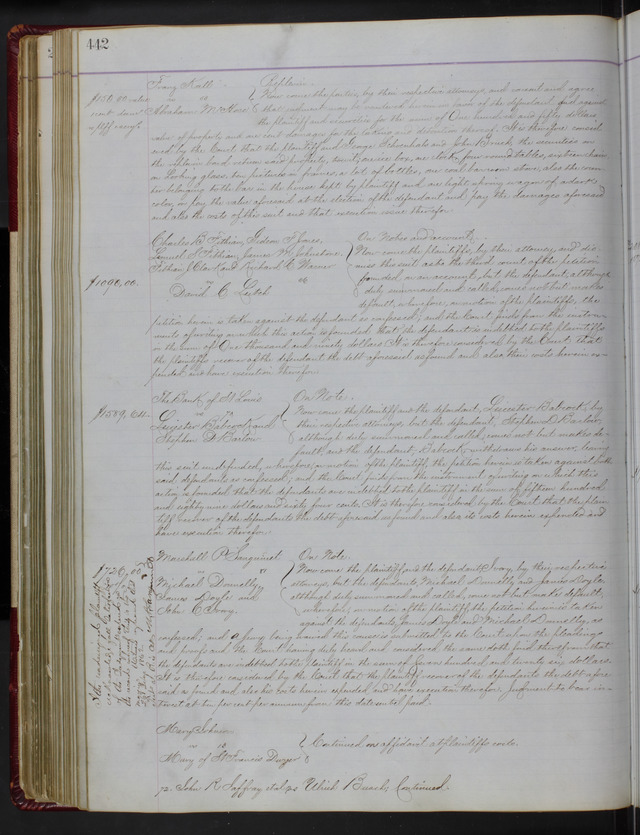 442
Franz Kalb Replevin.
vs
Abraham McKee
Now come the parties, by their respective attorneys, and consent and agree
that judgment may be rendered herein in favor of the defendant and against
the plaintiff and securities for the sum of One hundred and fifty dollars
value of property and one cent damages for the taking and detention thereof. It is therefore consid
ered by the Court that the plaintiff and George and John the securities on
the Replevin bond return said property, one clock, four round tables, sixteen chairs
one looking glass, ten pictures in frames, a lot of bottles, one coal bar room stove, also the
belonging to the Bar in the house kept by plaintiff and one light spring wagon
or pay the value aforesaid at the election of the defendant and pay the damages aforesaid
and also the costs of this suit and that execution issue therefor.
Charles B. Fithian, Gideon F. Jones, On Notes and account.
Samuel S. Fithian, James W. Johnston,
Fithian J. Clark and Richard C. Warner
vs
David C. Leitch
$1090,00.
Now come the plaintiffs, by their attorney and dis
miss this suit as to the third count of the petition
founded on an account, but the defendant, although
duly summoned and called, comes not but makes
default, wherefore, on motion of the plaintiffs, the
petition herein is taken against the defendant as confessed; and the Court finds from the instru
ments of writing on which this action is founded that the defendant is indebted to the plaintiffs
in the sum of One thousand and ninety dollars. It is therefore considered by the Court that
the plaintiffs recover of the defendant the debt aforesaid as found and also their costs herein ex
pended and have execution therefor.
The Bank of St Louis On Note.
vs
Leicester Babcock and
Stephen D. Barlow
Now come the plaintiff and the defendant, Leicester Babcock, by
their respective attorneys, but the defendant, Stephen D. Barlow,
although duly summoned and called, comes not but makes de
fault, and the defendant, Babcock withdraws his answer leaving
this suit undefended, wherefore, on motion of the plaintiff, the petition herein is taken against both
said defendants as confessed; and the Court finds from the instrument of writing on which this
action is founded that the defendants are indebted to the plaintiff in the sum of Fifteen hundred
and eighty nine dollars and sixty four cents. It is therefore considered by the Court that the plain
tiff recover of the defendants the debt aforesaid as found and also its costs herein expended and
have execution therefor.
Marshall P. Sanguinet On Note.
vs
Michael Donnelly,
James Doyle and
John C. Ivory.
Now come the plaintiff and the defendant Ivory, by their respective
attorneys, but the defendants, Michael Donnelly and James Doyle,
although duly summoned and called, come not but make default,
wherefore, on motion of the plaintiff, the petition herein is taken
against the defendants, James Doyle and Michael Donnelly, as
confessed; and a jury being waived this cause is submitted to the Court upon the pleadings
and proofs and the Court having duly heard and considered the same doth find therefrom that
the defendants are indebted to the plaintiff in the sum of Seven hundred and twenty six dollars.
It is therefore considered by the Court that the plaintiff recover of the defendants the debt afore
said as found and also his costs herein expended and have execution therefor. Judgment to bear in
terest at ten per cent per annum from this date until paid.
Mary
vs
Mary of St Francis Dwyer
Continued on affidavit at plaintiffs costs.
72. John R. Jaffray et al. vs Ulrich Busch; Continued.